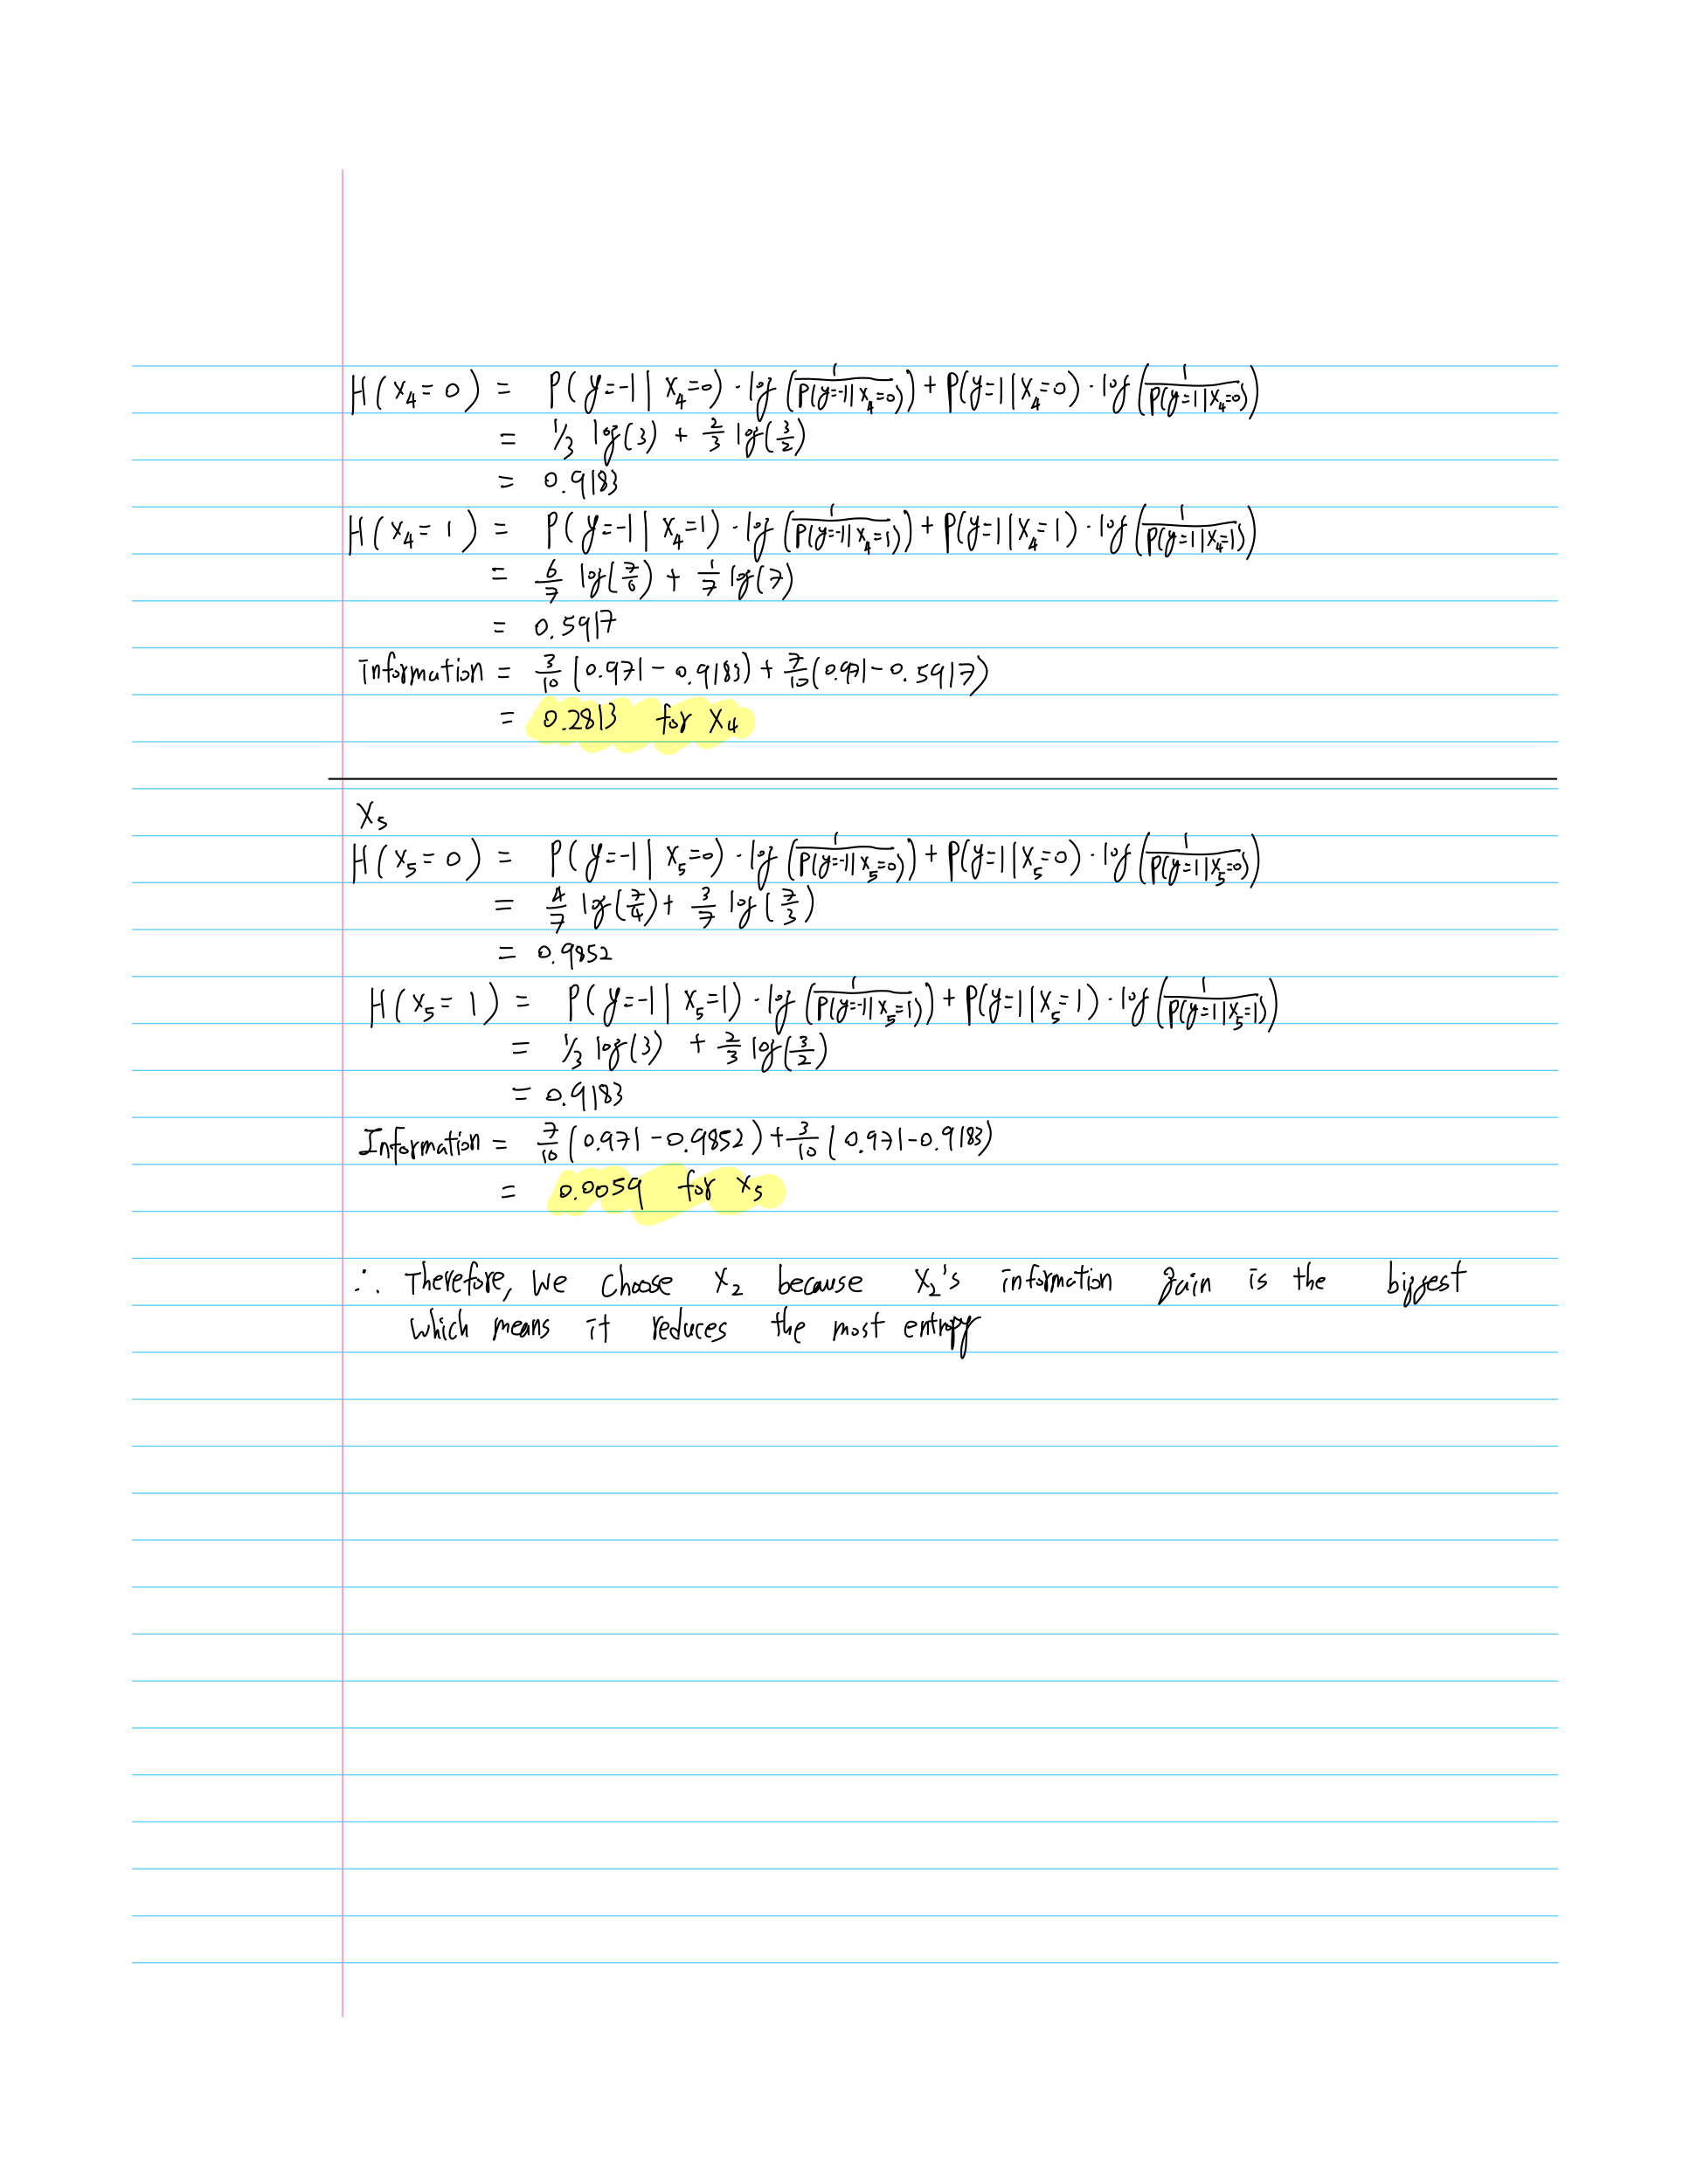 H(x₄=0) = P(y=-1|x₄=0)·log(1/P(y=-1|x₄=0)) + P(y=1|x₄=0)·log(1/P(y=1|x₄=0))
= 1/3 log(3) + 2/3 log(3/2)
= 0.9183
H(x₄=1) = P(y=-1|x₄=1)·log(1/P(y=-1|x₄=1)) + P(y=1|x₄=1)·log(1/P(y=1|x₄=1))
= 6/7 log(7/6) + 1/7 log(7)
= 0.5917
information = 3/10(0.971-0.9183) + 7/10(0.971-0.5917)
= 0.2813 for x₄
X₅
H(x₅=0) = P(y=-1|x₅=0)·log(1/P(y=-1|x₅=0)) + P(y=1|x₅=0)·log(1/P(y=1|x₅=0))
= 4/7 log(7/4) + 3/7 log(7/3)
= 0.9852
H(x₅=1) = P(y=-1|x₅=1)·log(1/P(y=-1|x₅=1)) + P(y=1|x₅=1)·log(1/P(y=1|x₅=1))
= 1/3 log(3) + 2/3 log(3/2)
= 0.9183
Information = 7/10(0.971-0.9852) + 3/10(0.971-0.9183)
= 0.0059 for x₅
∴ Therefore, we choose x₂ because x₂'s information gain is the biggest
which means it reduces the most entropy